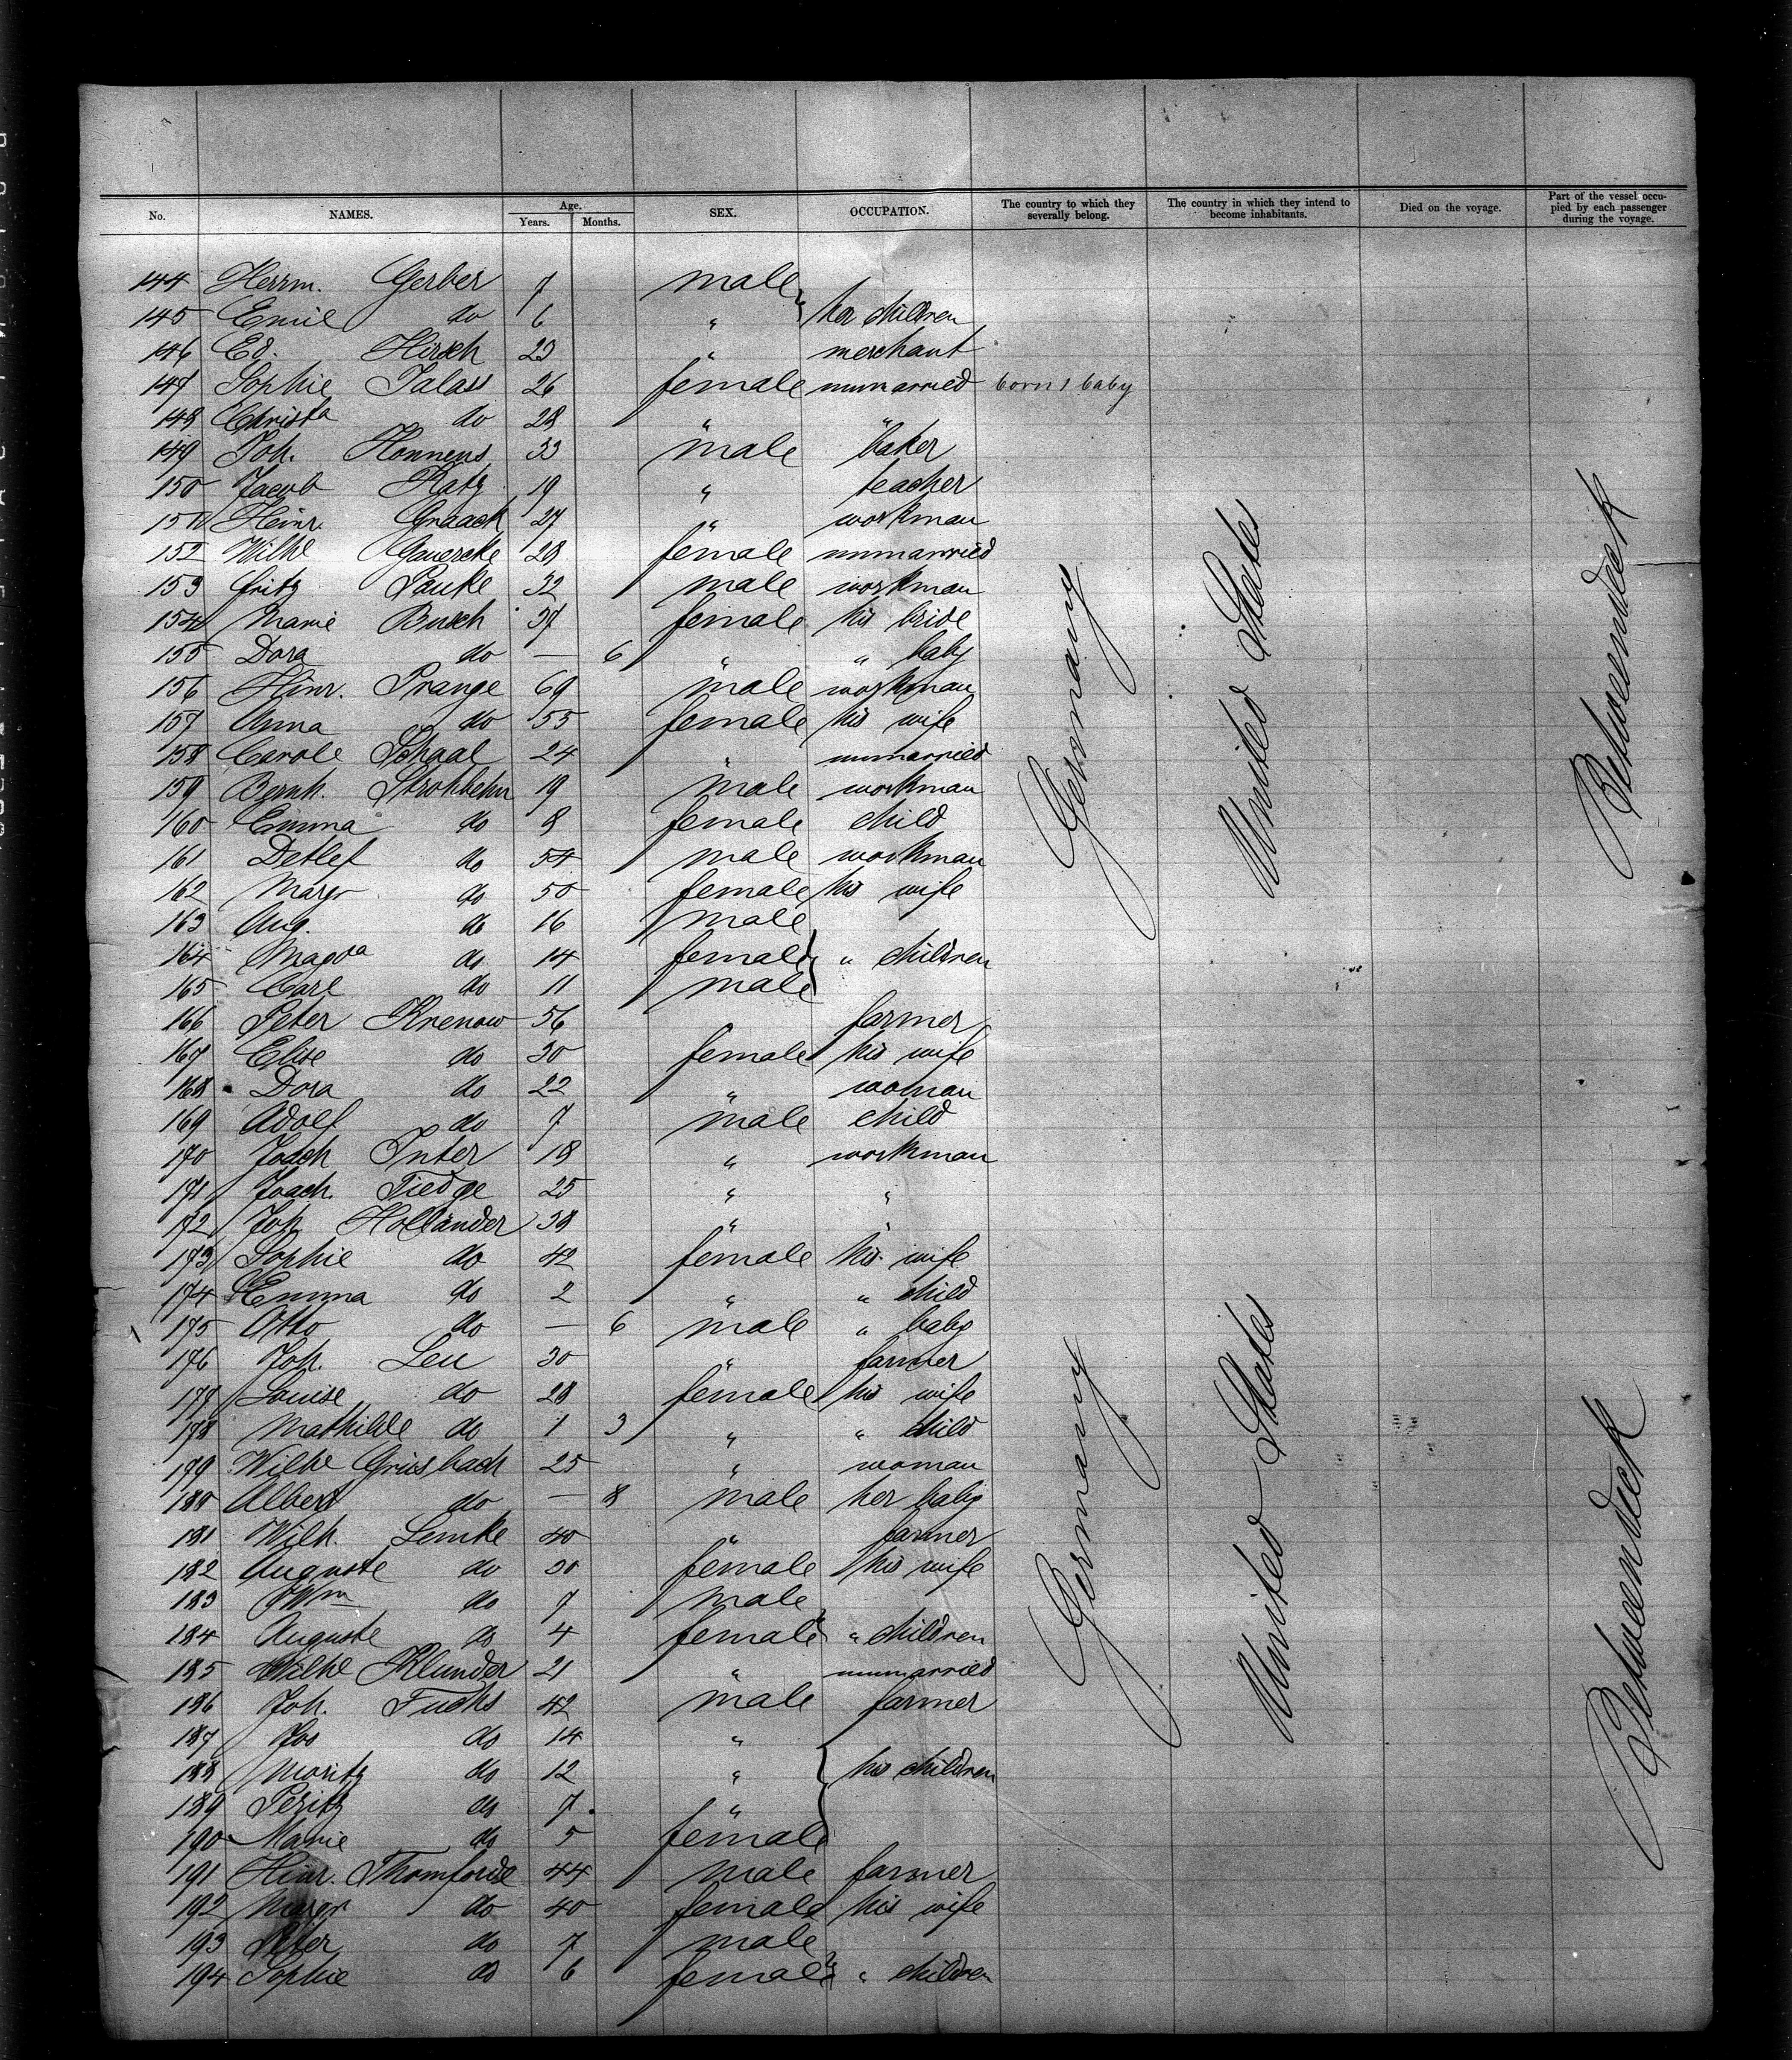 No. NAMES. Age. Years. Months. SEX. OCCUPATION. The country to which they severally belong. The country in which they intend to become inhabitants. Died on the voyage. Part of the vessel occupied by each passenger during the voyage.
144 Herrm. Gerber 7 male
145 Emil do 6 " her children
146 Ed. Hirsch 23 " merchant
147 Sophie 26 female unmarried born 1 baby
148 Christa do 28 " "
149 Joh. Honnens 33 male baker
150 Jacob Katz 19 " teacher
151 Heinr. Graack 27 " workman
152 Wilhe 28 female unmarried
153 Fritz Pauke 32 male workman
154 Marie Busch 37 female his bride
155 Dora do — 6 " " baby
156 Hinr. Prange 69 male workman
157 Anna do 55 female his wife
158 Carole Schaal 24 " unmarried
159 Bernh. Strohbehn 19 male workman
160 Emma do 8 female child
161 Detlef do 54 male workman
162 Margr do 50 female his wife
163 Aug. do 16 male
164 Magda do 14 female " children
165 Carl do 11 male
166 Peter Krenow 56 farmer
167 Elise do 30 female his wife
168 Dora do 22 " woman
169 Adolf do 7 male child
170 Joach Inter 18 " workman
171 Joach. Tiedge 25 " "
172 Joh Holländer 38 " "
173 Sophie do 42 female his wife
174 Emma do 2 " " child
175 Otto do — 6 male " baby
176 Joh. Leu 30 " farmer
177 Louise do 28 female his wife
178 Mathilde do 1 3 " " child
179 Wilhe Griesbach 25 " woman
180 Albert do — 8 male her baby
181 Wilh. Lemke 40 " farmer
182 Auguste do 30 female his wife
183 Wm do 7 male
184 Auguste do 4 female " children
185 Wilhe Klunder 21 " unmarried
186 Joh. Fuchs 42 male farmer
187 Jos do 14 "
188 Moritz do 12 " his children
189 do 7 "
190 Marie do 5 female
191 Hinr. Thomforde 44 male farmer
192 Margr do 40 female his wife
193 Peter do 7 male
194 Sophie do 6 female " children
Germany United States Betweendeck
Germany United States Betweendeck